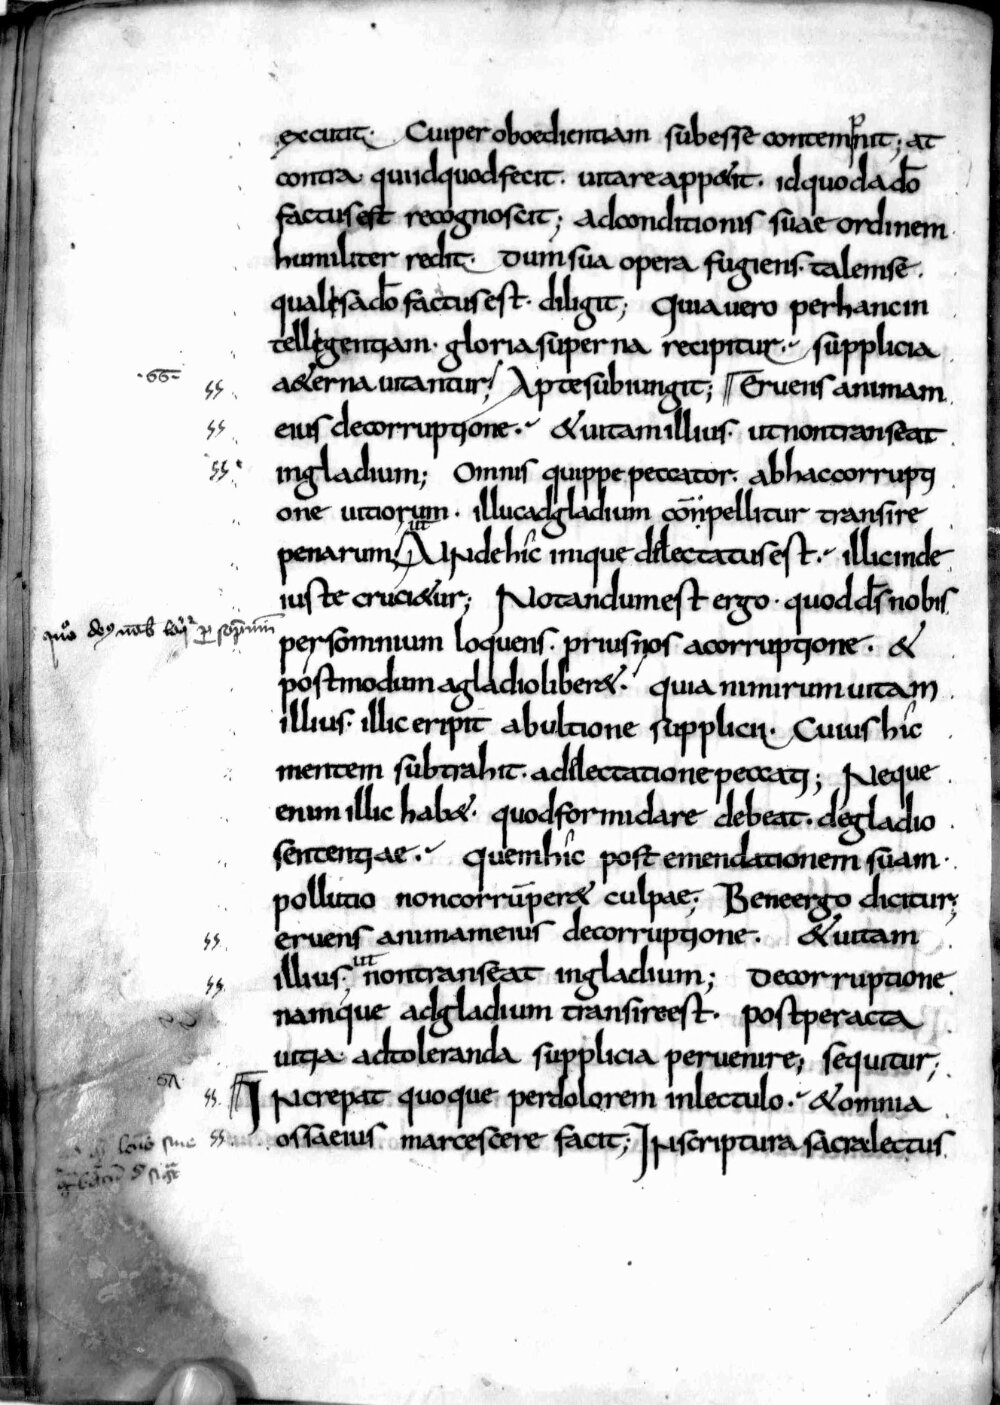 excutit· Cui per oboedientiam subesse contempnit; at
contra qui id quod fecit· uitare appetit· id quod a dō
factus est recognoscit; ad conditionis suae ordinem
humiliter redit· Dum sua opera fugiens· talem se
qualis a dō factus est· diligit; Quia uero per hanc in
tellegentiam· gloria superna recipitur· supplicia
·66·
aeterna uitantur; Apte subiungit; Eruens animam
eius de corruptione· & uitam illius· ut non transeat
in gladium; Omnis quippe peccator· ab hac corrupti
one uitiorum· illuc ad gladium conpellitur transire
penarum; ut Unde hîc inique dilectatus est· illic inde
iuste cruci&ur; Notandum est ergo· quod d̄s nobis
per somnium loquens· prius nos a corruptione· &
postmodum a gladio liber&· quia nimirum uitam
illius· illic eripit ab ultione supplicii· Cuius hîc
mentem subtrahit· a dilectatione peccati; Neque
enim illic hab&· quod formidare debeat· de gladio
sententiae· Quem hîc post emendationem suam·
pollutio non corrūper& culpae; Bene ergo dicitur;
eruens animam eius de corruptione· & uitam
illius· ut non transeat in gladium; De corruptione
namque ad gladium transire est· post peracta
uitia ad toleranda supplicia peruenire; sequitur;
Increpat quoque per dolorem in lectulo· & omnia
ossa eius marcescere facit; In scriptura sacra lectus